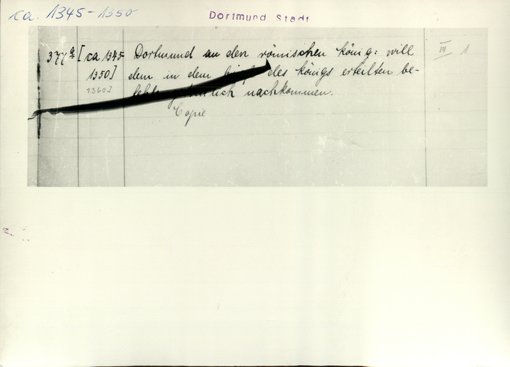 ca. 1345-1350
Dortmund Stadt
377a [ca 1345 Dortmund an den römischen König: will III 1
1350] dem in dem des Königs erteilten be-
1360] nachkommen.
Copie